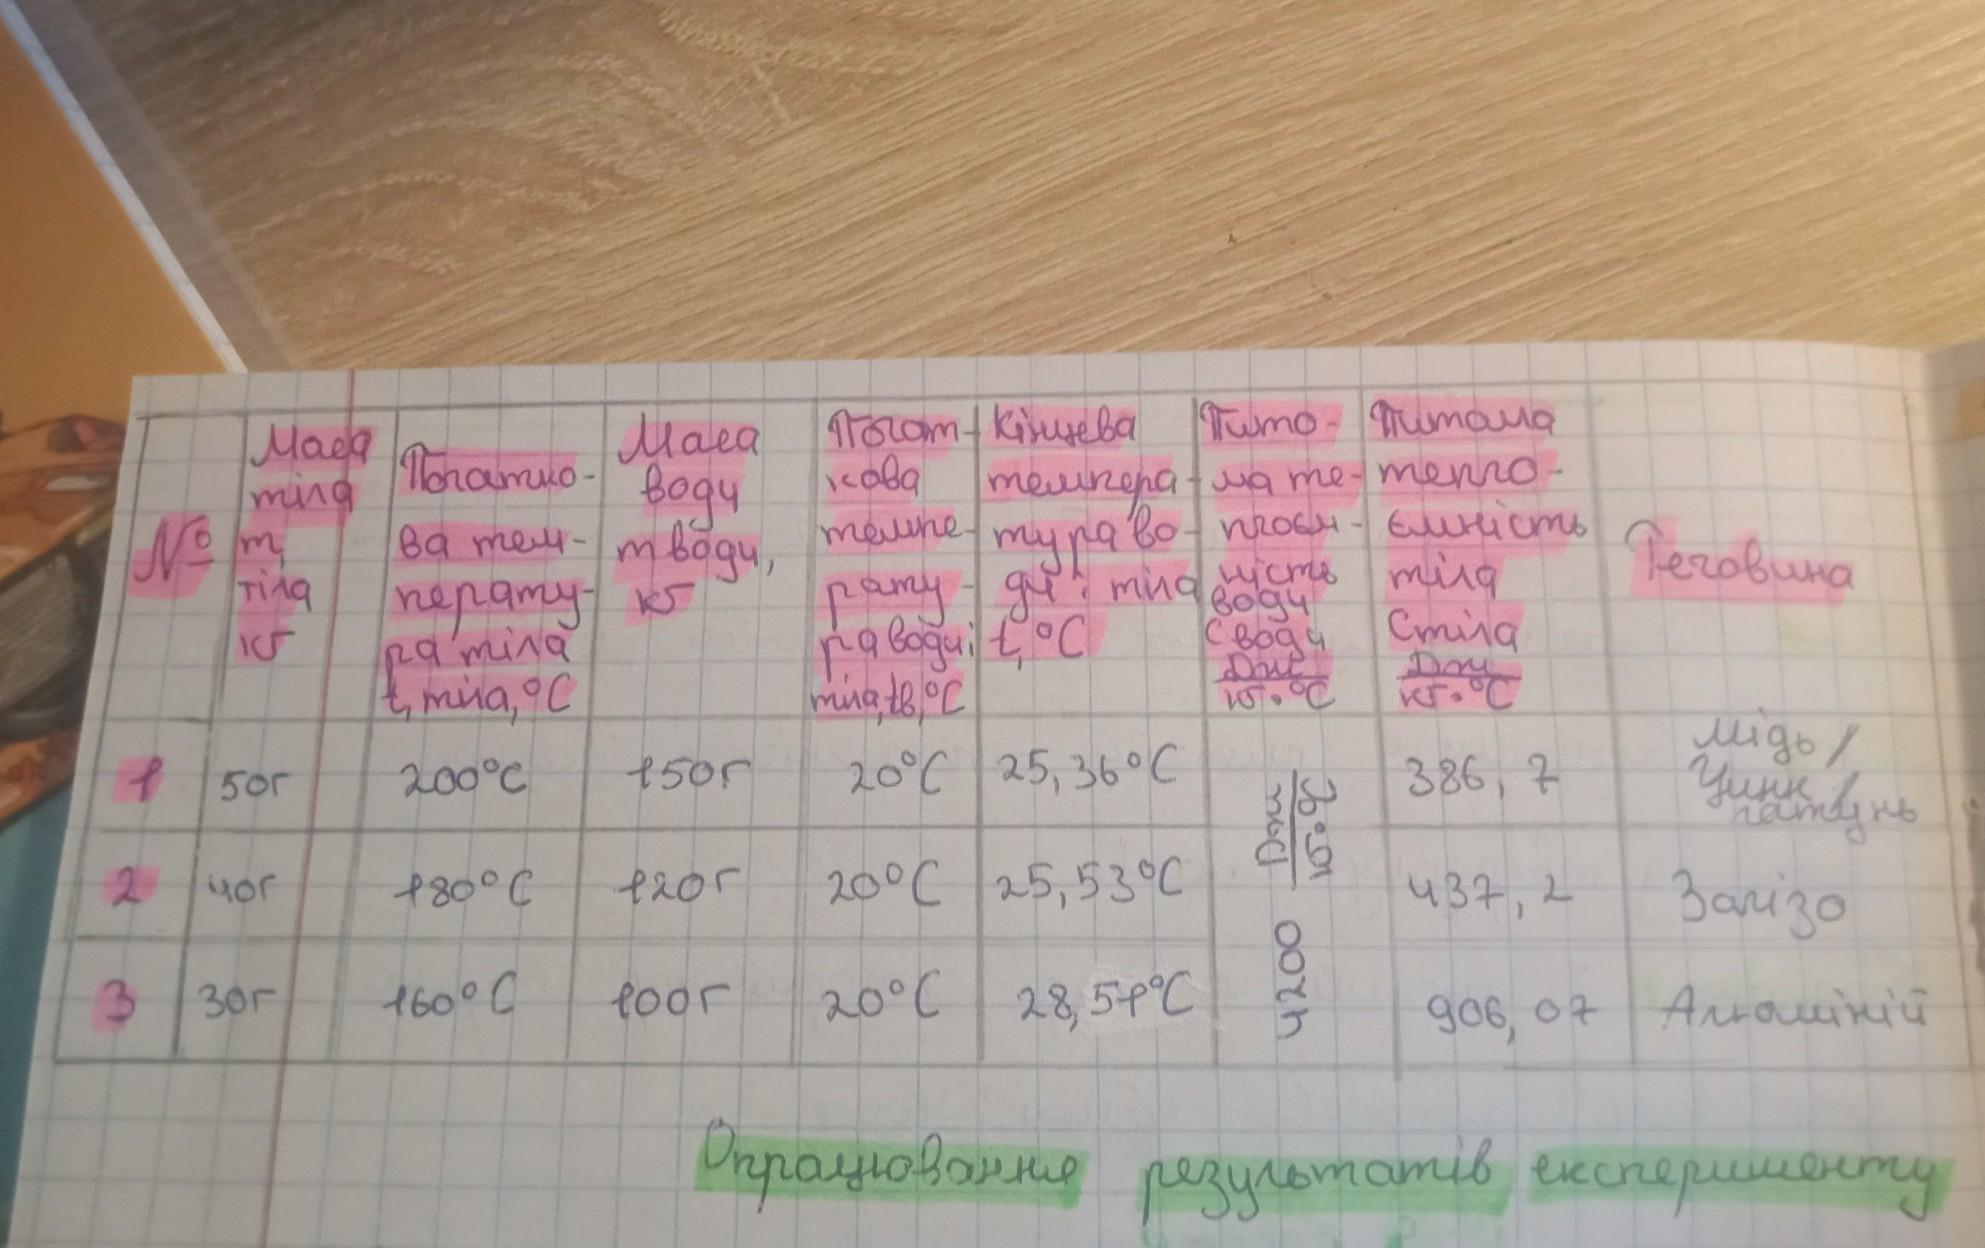 №
Маса
тіла
m,
тіла
кг
Початко-
ва тем-
перату-
ра тіла
t, тіла, °C
Маса
води
m води,
кг
Почат-
кова
темпе-
рату-
ра води і
тіла, tв, °C
Кінцева
темпера-
тура во-
ди і тіла
t, °C
Пито-
ма те-
плоєм-
ність
води
C води
Дж
кг·°C
Питома
тепло-
ємність
тіла
C тіла
Дж
кг·°C
Речовина
1 50г 200°C 150г 20°C 25,36°C 386,7 мідь/
Цинк/
латунь
2 40г 180°C 120г 20°C 25,53°C 437,2 Залізо
3 30г 160°C 100г 20°C 28,51°C 906,07 Алюміній
4200 Дж
кг·°C
Опрацювання результатів експерименту